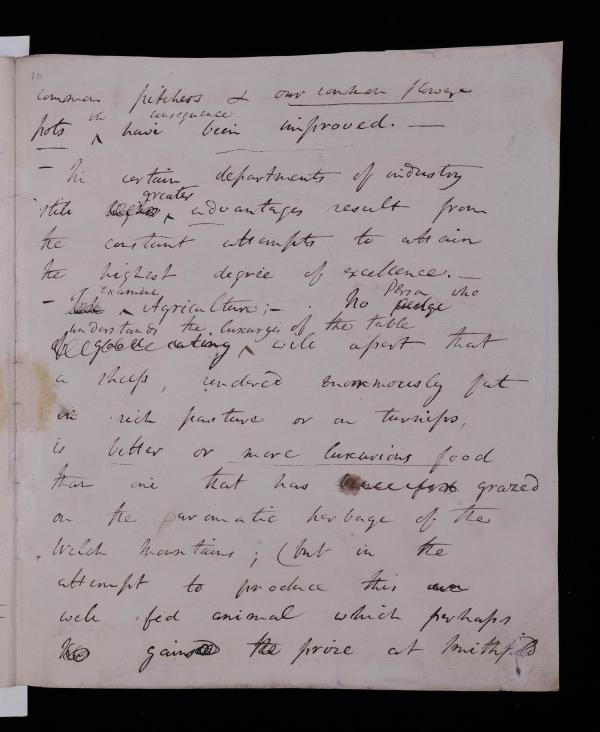 10
common pitchers & our common flower
pots in consequence have been improved. —
— In certain departments of industry
still greater advantages result from
the constant attempts to attain
the highest degree of excellence. —
— examine Agriculture; — . No Person who
understands the luxuries of the table
of good eating will assert that
a sheep, rendered enormously fat
in rich pasture or on turnips,
is better or more luxurious food
than one that has been fed grazed
on the aromatic herbage of the
Welch Mountains; (but in the
attempt to produce this
well fed animal which perhaps
gained the prize at Smithfield